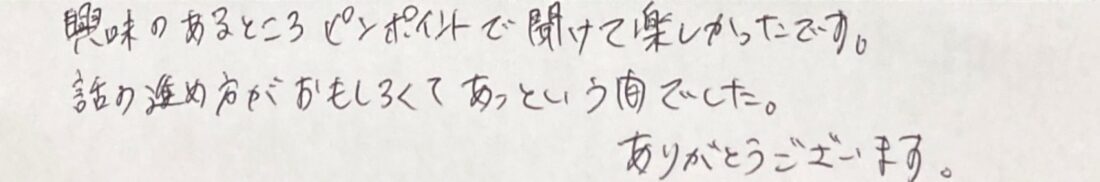 興味のあるところピンポイントで聞けて楽しかったです。
話の進め方がおもしろくてあっという間でした。
ありがとうございます。